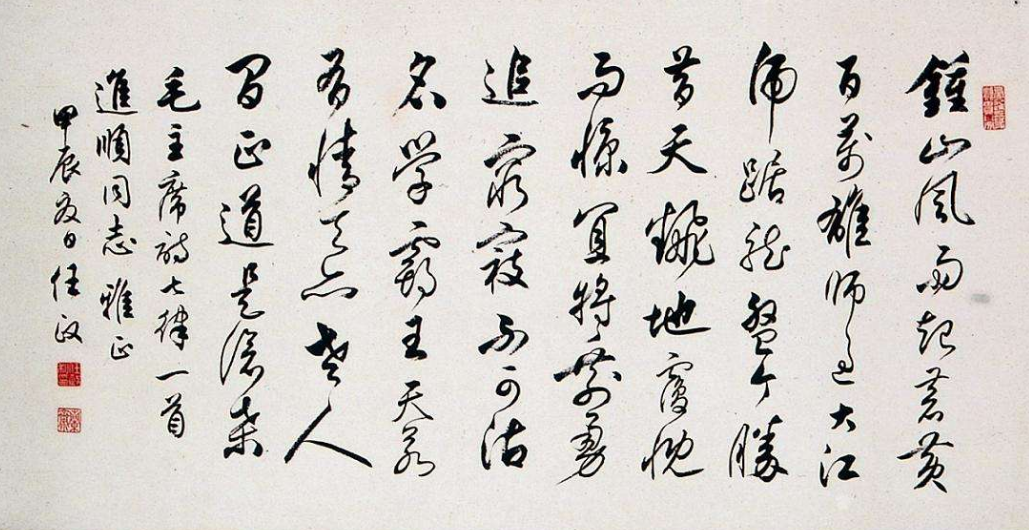 鍾山風雨起蒼黄
百萬雄師過大江
虎踞龍盤今勝
昔天翻地覆慨
而慷宜將剩勇
追窮寇不可沽
名學霸王天若
有情天亦老人
間正道是滄桑
毛主席詩七律一首
進順同志雅正
甲辰夏日任政